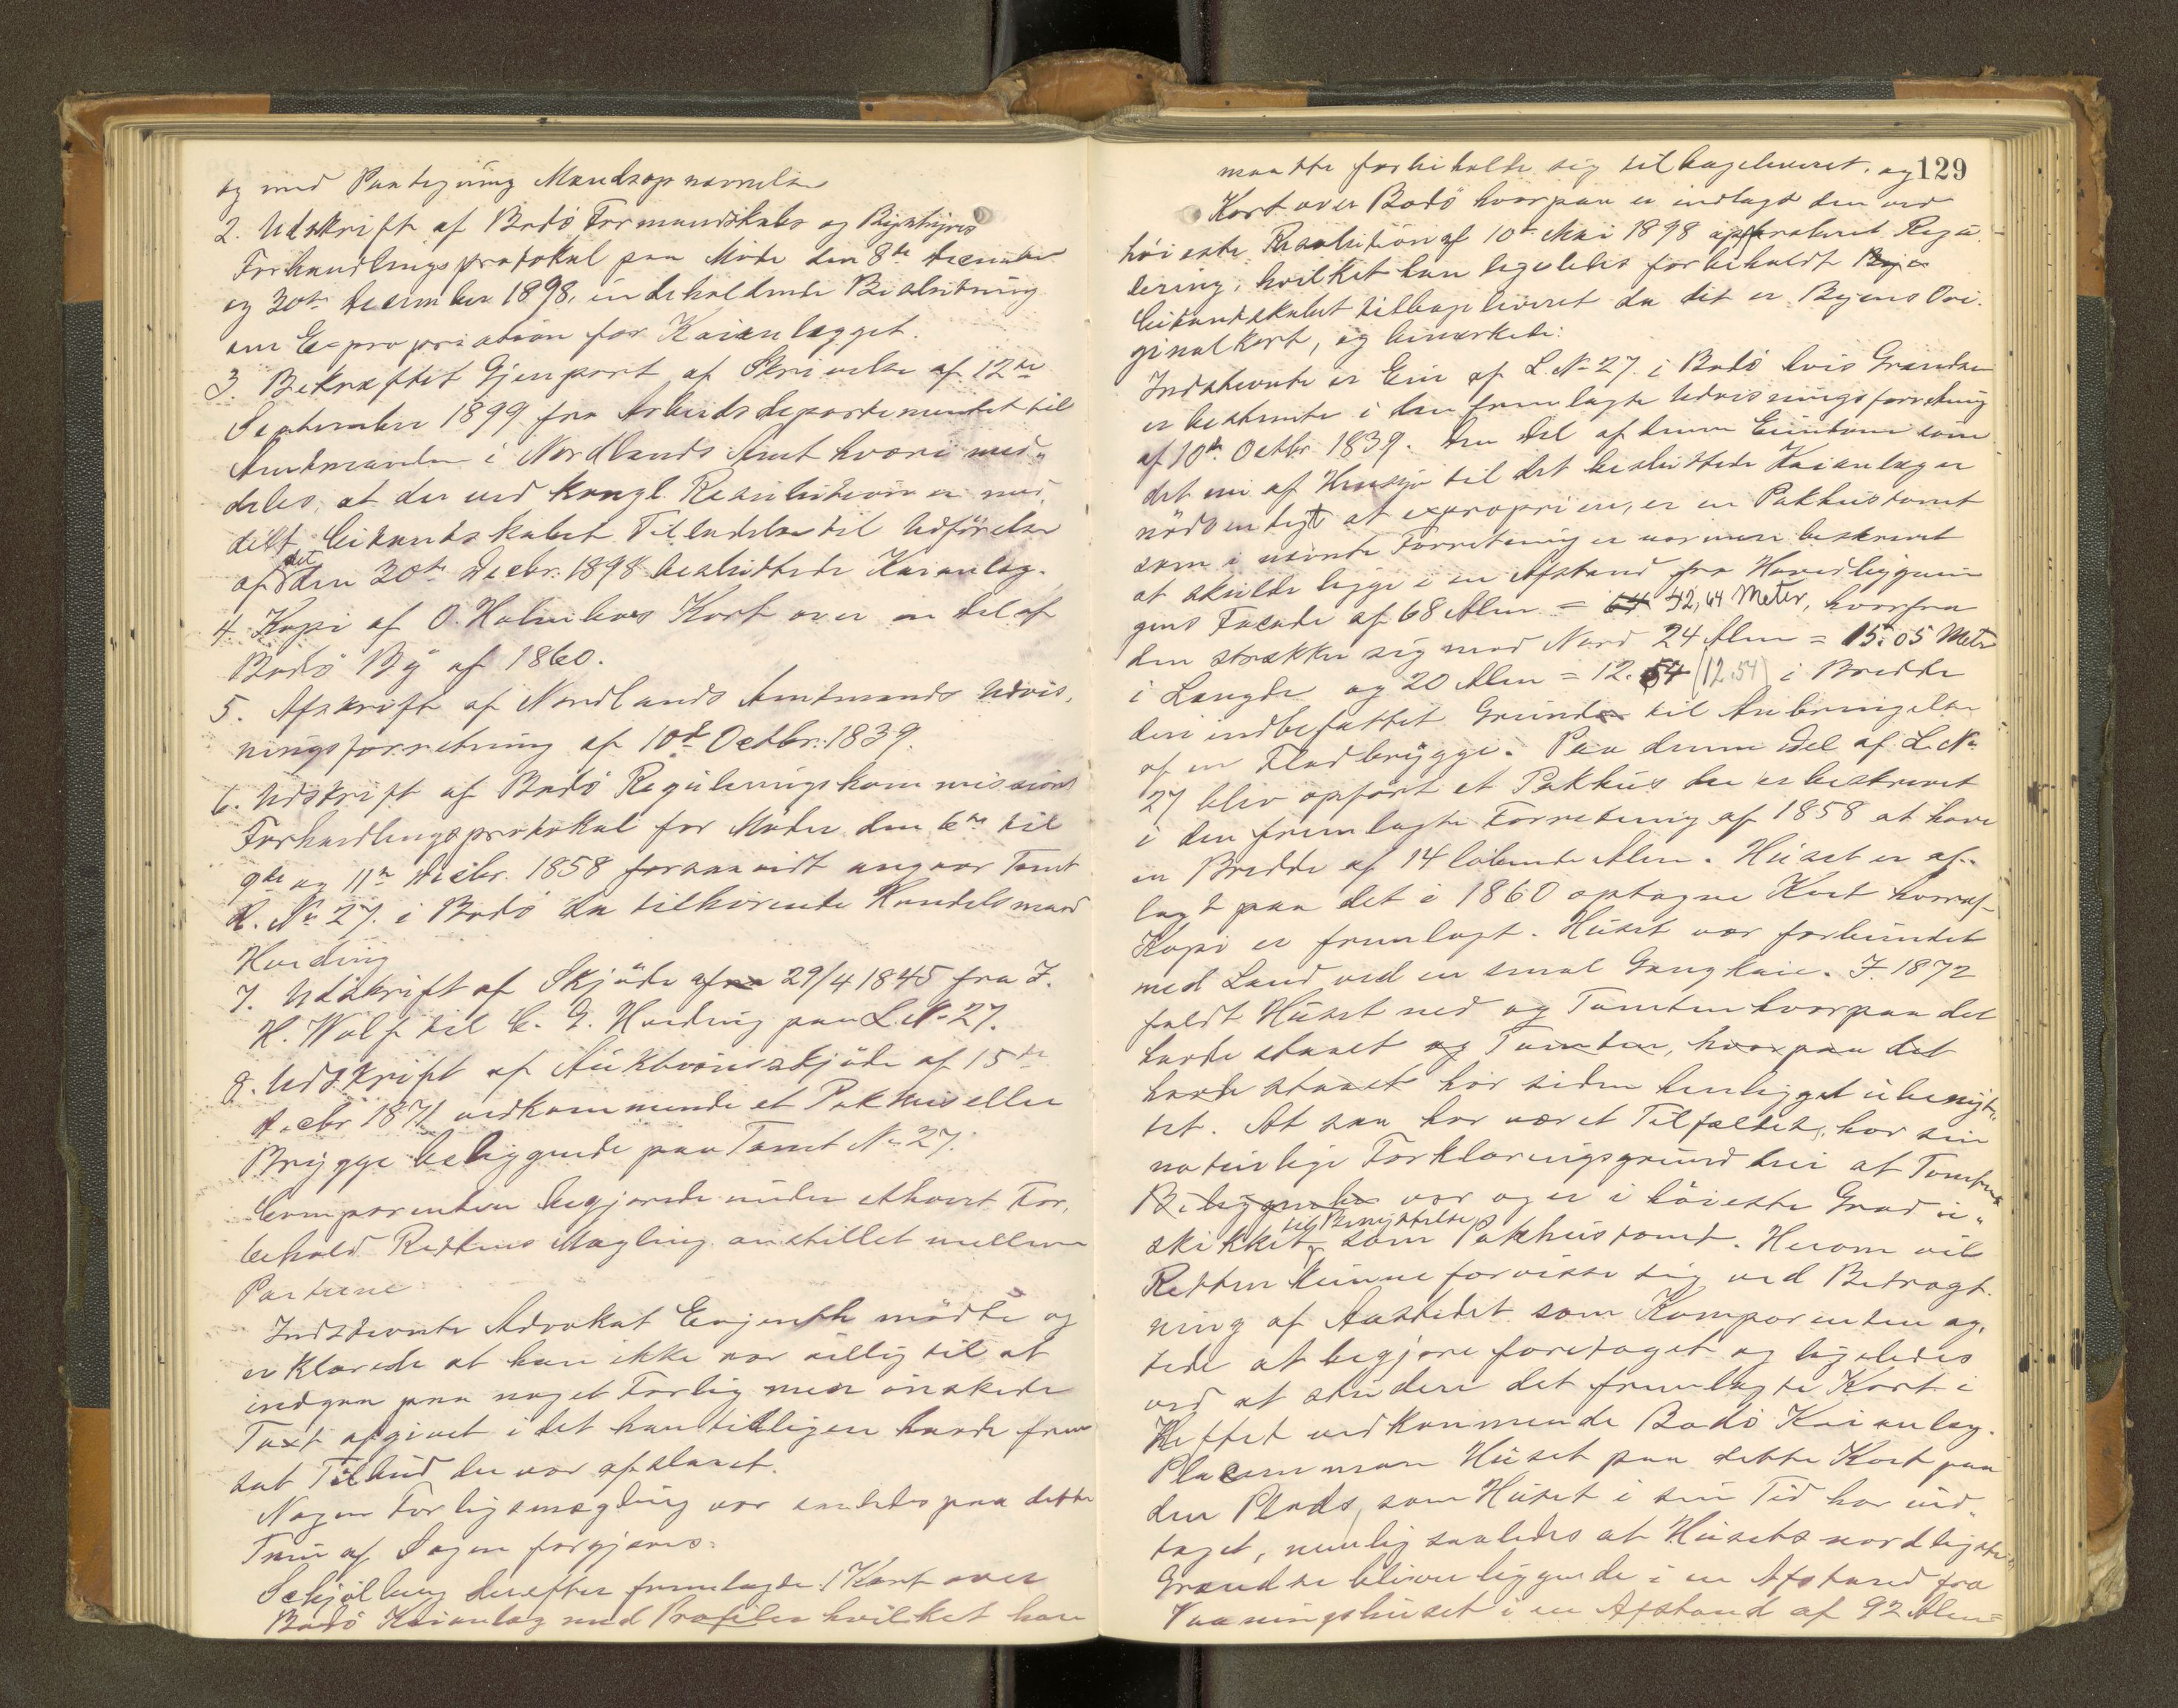 og med Paategning Mandsopnævnelse
2. Udskrift af Bodö Formandskabs og Bystyres
Forhandlingsprotokol paa Möde den 8de December
og 30te December 1898, indeholdende Beslutning
om Expropriation for Kaianlægget.
3. Bekræftet Gjenpart af Skrivelse af 12te
September 1899 fra Arbeidsdepartementet til
Amtmanden i Nordlands Amt hvori med„
deles, at der ved kongl. Resolution er med„
delt Eieendskabet Tilladelse til Udförelse
af det den 30te Decbr. 1898 besluttede Kaianlæg.
4. Kopi af O. Holmboes Kort over en del af
Bodö By af 1860.
5. Afskrift af Nordlands Amtmands Udvis„
ningsforretning af 10de Octbr. 1839.
6. Udskrift af Bodö Reguleringskommissions
Forhandlingsprotokol for Möder den 6te til
9de og 11te Decbr. 1858 forsaavidt angaar Tomt
L. No 27 i Bodö da tilhörende Handelsmand
Harding
7. Udskrift af Skjöde af 29/4 1845 fra J.
H. Wolf til C. G. Harding paa L. No 27.
8. Udskrift af Auktionsskjöde af 15de
Decbr 1871 vedkommende et Pakhus eller
Brygge beliggende paa Tomt No 27.
Comparenten begjærede under ethvert For„
behold Rettens Mægling anstillet mellem
Parterne.
Indstevnte Advokat Enjenth mödte og
erklærede at han ikke var villig til at
indgaa paa noget Forlig men önskede
Taxt afgivet i det han tidligere havde frem
sat Tilbud der var afslaaet.
Nogen Forligsmægling var saaledes paa dette
Trin af Sagen forgjæves.
Schjölberg derefter fremlagde: Kort over
Bodö Kaianlæg med Profiler hvilket han
129
maatte forbeholde sig tilbageleveret, og
Kort over Bodö hvorpaa er indlagt den ved
höieste Resolution af 10de Mai 1898 approberet Regu„
lering, hvilket han ligeledes forbeholdt Bye
tilbageleveret da det er Byens Ori„
ginalkort, og bemærkede:
Indstevnte er Eier af L. No 27 i Bodö hvis Grændser
er bestemte i den fremlagte Udvisningsforretning
af 10de Octbr. 1839. Den Del af denne Eiendom som
det nu af Hensyn til det besluttede Kaianlæg er
nödvendigt at expropriere, er en Pakhustomt
som i nævnte Forretning er nærmere beskrevet
at skulde ligge i en Afstand fra Hovedbygnin
gens Facade af 68 Alen = 64 42,64 Meter, hvorfra
den strækker sig mod Nord 24 Alen = 15.05 Meter
i Længde og 20 Alen = 12.54 (12.54) i Bredde
deri indbefattet Grunden til Anbringelse
af en Flodbrygge. Paa denne Del af L. No
27 blev opfört et Pakhus der er beskrevet
i den fremlagte Forretning af 1858 at have
en Bredde af 14 löbende Alen. Huset er af„
lagt paa det i 1860 optagne Kort hvoraf
Kopi er fremlagt. Huset var forbundet
med Land ved en smal Gangkaie. I 1872
faldt Huset ned og Tomten hvorpaa det
havde staaet og Tomten, hvorpaa det
havde staaet har siden henligget ubenyt„
tet. At saa har været Tilfældet, har sin
naturlige Forklaringsgrund deri at Tomtens
Beliggenhed var og er i höieste Grad u„
skikket til Benyttelse som Pakhustomt. Herom vil
Retten kunne forvisse sig ved Betragt„
ning af Aastedet som Komparenten ag„
tede at begjære foretaget og ligeledes
ved at studere det fremlagte Kort i
Heftet vedkommende Bodö Kaianlæg.
Placerer man Huset paa dette Kort paa
den Plads, som Huset i sin Tid har ind„
taget, nemlig saaledes at Husets nordligste
Grændse bliver liggende i en Afstand fra
Vaaningshuset i en Afstand af 92 Alen =